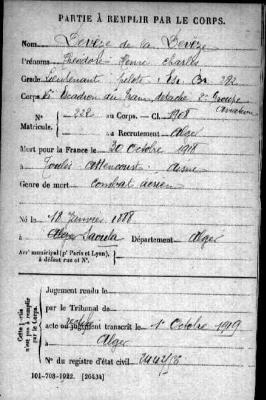 PARTIE À REMPLIR PAR LE CORPS.
Nom Devèze de la Devèze
Prénoms Théodore Henri Charles
Grade Lieutenant pilote
Corps Escadron du Train détaché 2e Groupe Aviation
N° au Corps. — Cl. 1908
Matricule. au Recrutement Alger
Mort pour la France le 20 Octobre 1918
à Toulis Attencourt Aisne
Genre de mort Combat aérien
Né le 18 Janvier 1888
à Alger Saoula Département Alger
Arrt municipal (pr Paris et Lyon),
à défaut rue et N°.
Cette partie n'est pas à remplir par le Corps.
Jugement rendu le
par le Tribunal de
acte ou jugement transcrit le 1er Octobre 1919
à Alger
N° du registre d'état civil
101-708-1922. [26434]